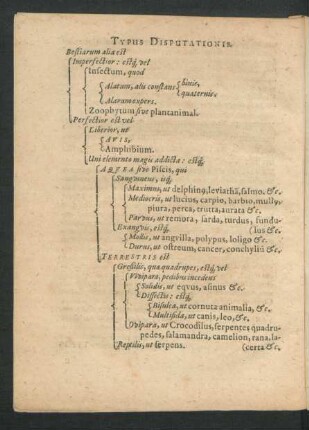 TYPUS DISPUTATIONIS.
Bestiarum alia est
Imperfectior: estq́; vel
Insectum, quod
Alatum, alis constans
binis.
quaternis.
Alarum expers.
Zoophytum sive plantanimal.
Perfectior est vel
Liberior, ut
AVIS,
Amphibium.
Uni elemento magis addicta: estq́;
AQVEA sive Piscis, qui
Sangvineus, isq́;
Maximus, ut delphinꝰ, leviathā, salmo. &c.
Mediocris, ut lucius, carpio, barbio, mullꝰ,
piura, perca, trutta, aurata &c.
Parvus, ut remora, sarda, turdus, fundu-
Exangvis, estq́; (lus &c
Mollis, ut angvilla, polypus, loligo &c.
Durus, ut ostreum, cancer, conchyliū &c.
TERRESTRIS est
Gressilis, quæ quadrupes, estq́; vel
Vivipara, pedibus incedens
Solidis, ut eqvus, asinus &c.
Dissectis: estq́;
Bisulca, ut cornuta animalia, &c.
Multifida, ut canis, leo, &c.
Ovipara, ut Crocodilus, serpentes quadru-
pedes, salamandra, camelion, rana, la-
Reptilis, ut serpens. (certa &c.